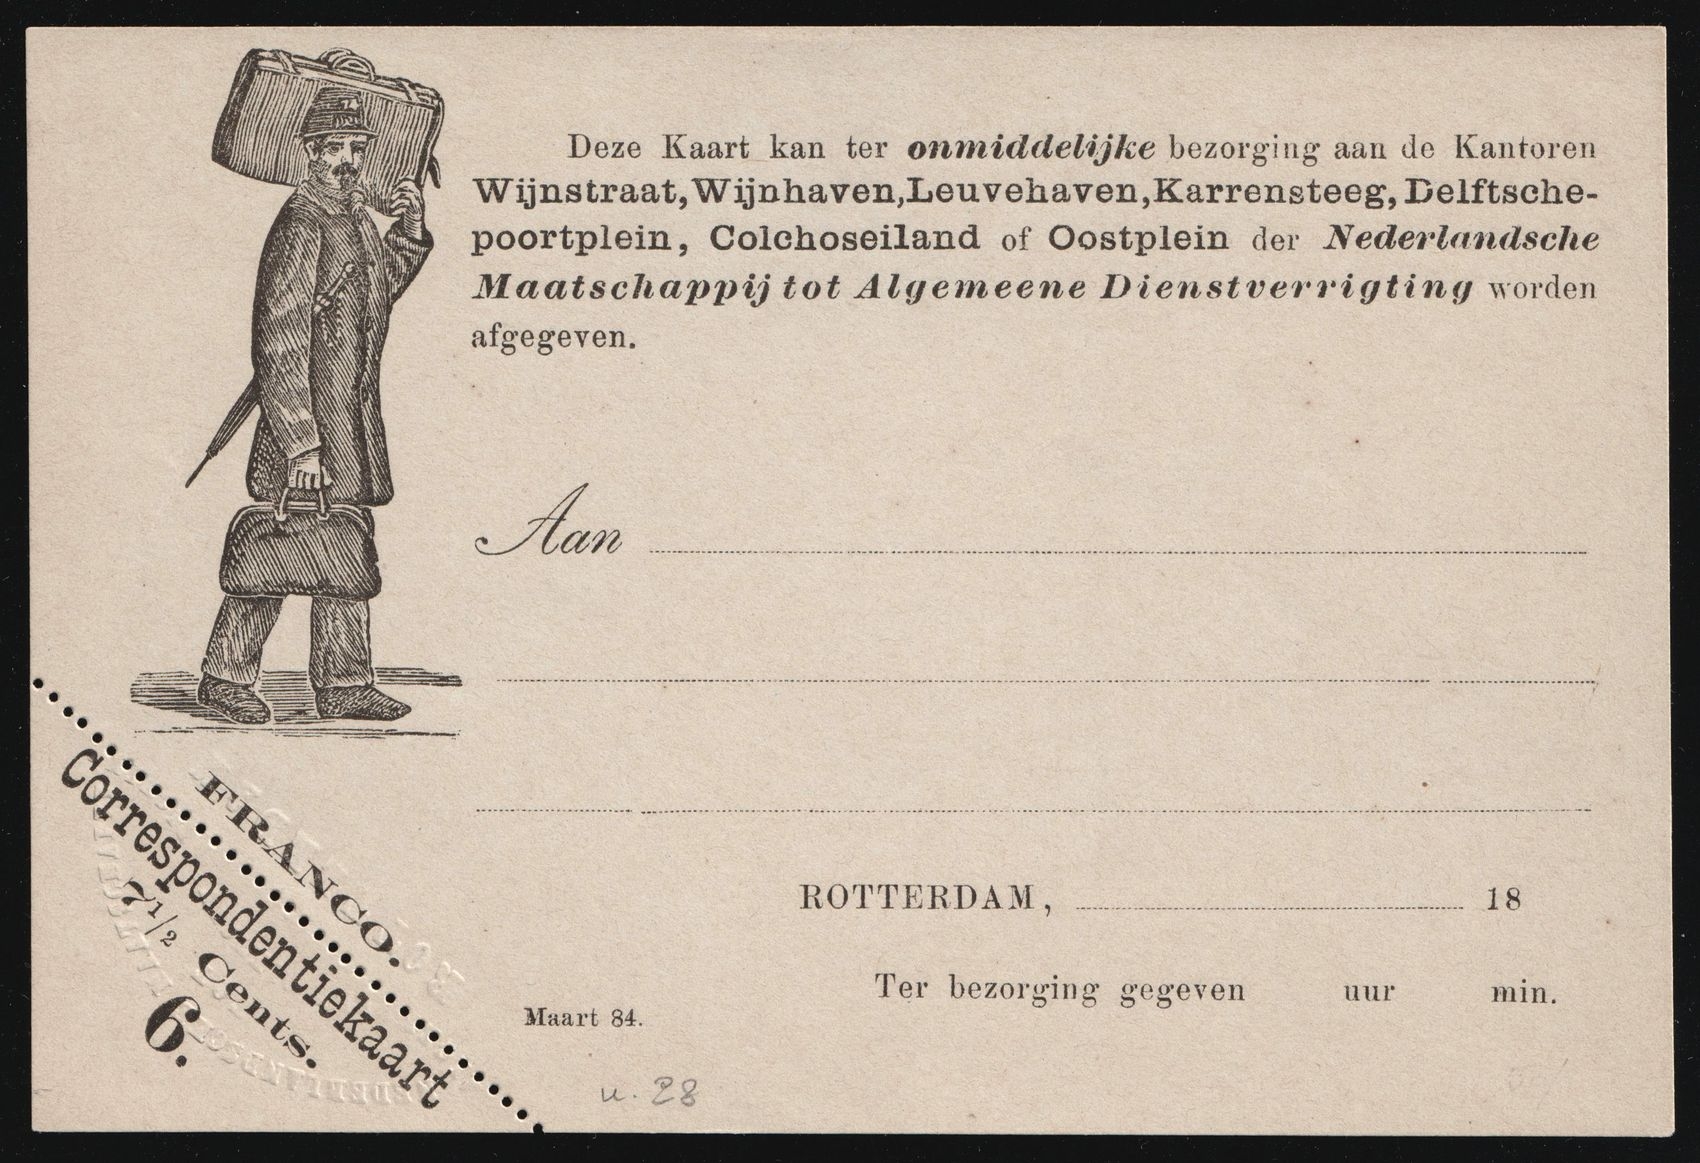 Deze Kaart kan ter onmiddelijke bezorging aan de Kantoren
Wijnstraat, Wijnhaven, Leuvehaven, Karrensteeg, Delftsche-
poortplein, Colchoseiland of Oostplein der Nederlandsche
Maatschappij tot Algemeene Dienstverrigting worden
afgegeven.
Aan
FRANCO.
Correspondentiekaart
7 1/2 Cents.
6.
ROTTERDAM, 18
Ter bezorging gegeven uur min.
Maart 84.
u. 28